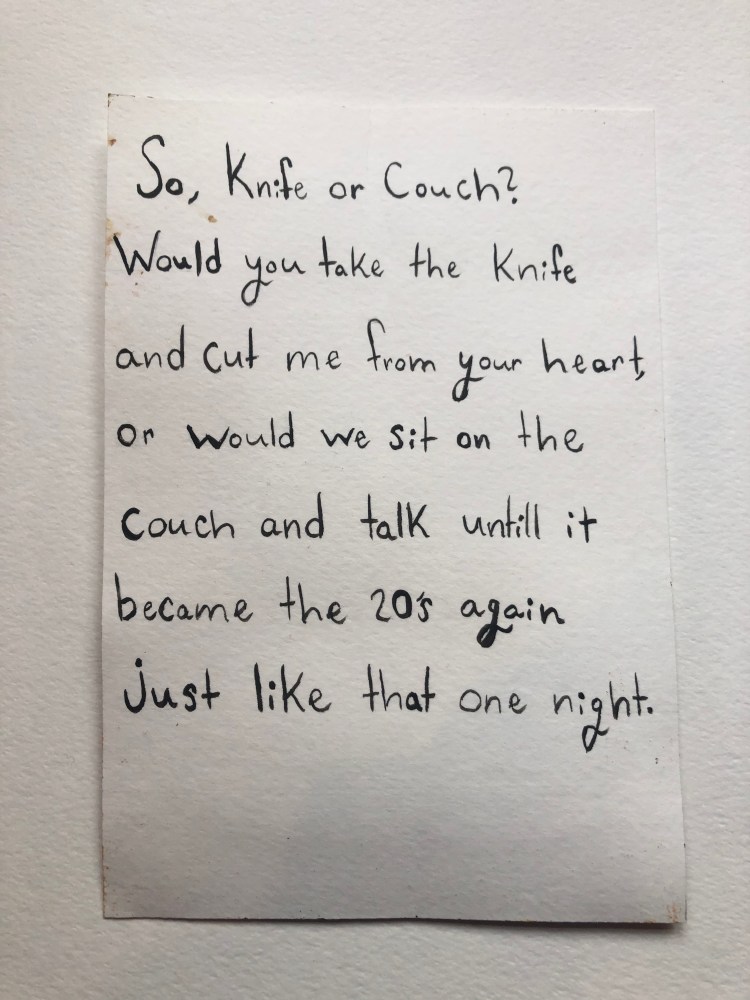 So, Knife or Couch?
Would you take the Knife
and cut me from your heart,
or would we sit on the
Couch and talk untill it
became the 20's again
just like that one night.